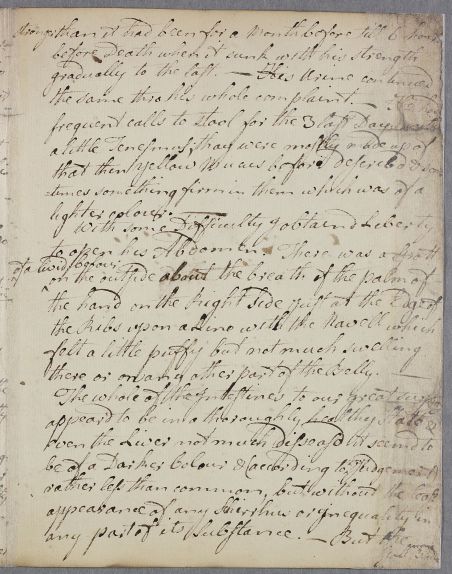 stronger than it had been for a Month before till 6 hours
before Death when it sunk with his strength
gradually to the last. — His Urine continued
the same thro his whole complaint.
frequent calls to Stool for the 3 last Days
a little Tenesmus, they were mostly made up of
that thin yellow Mucus before describ'd & som
times something firm in them which was of a
lighter colour.
With some Difficulty I obtaind Liberty
to open his Abdomen. There was a
of a livid colour
on the outside about the breath of the palm of
the hand on the Right side just at the Edge of
the Ribs upon a Line with the Navell which
felt a little puffy but not much swelling
there or on any other part of the Belly.
The whole of the Intestines to our great
appeard to be in a thoroughly healthy State &
even the Liver not much diseased it seemd to
be of a Darker Colour & (according to Judgement)
rather less than common, but without the least
appearance of any Schirrhus or inequality in
any part of its Substance. — But the